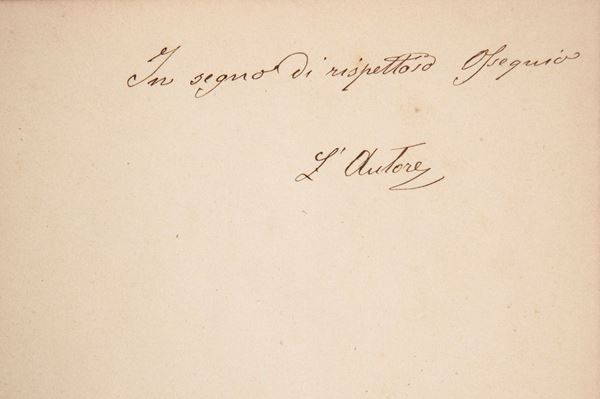 In segno di rispettoso Ossequio
L'Autore